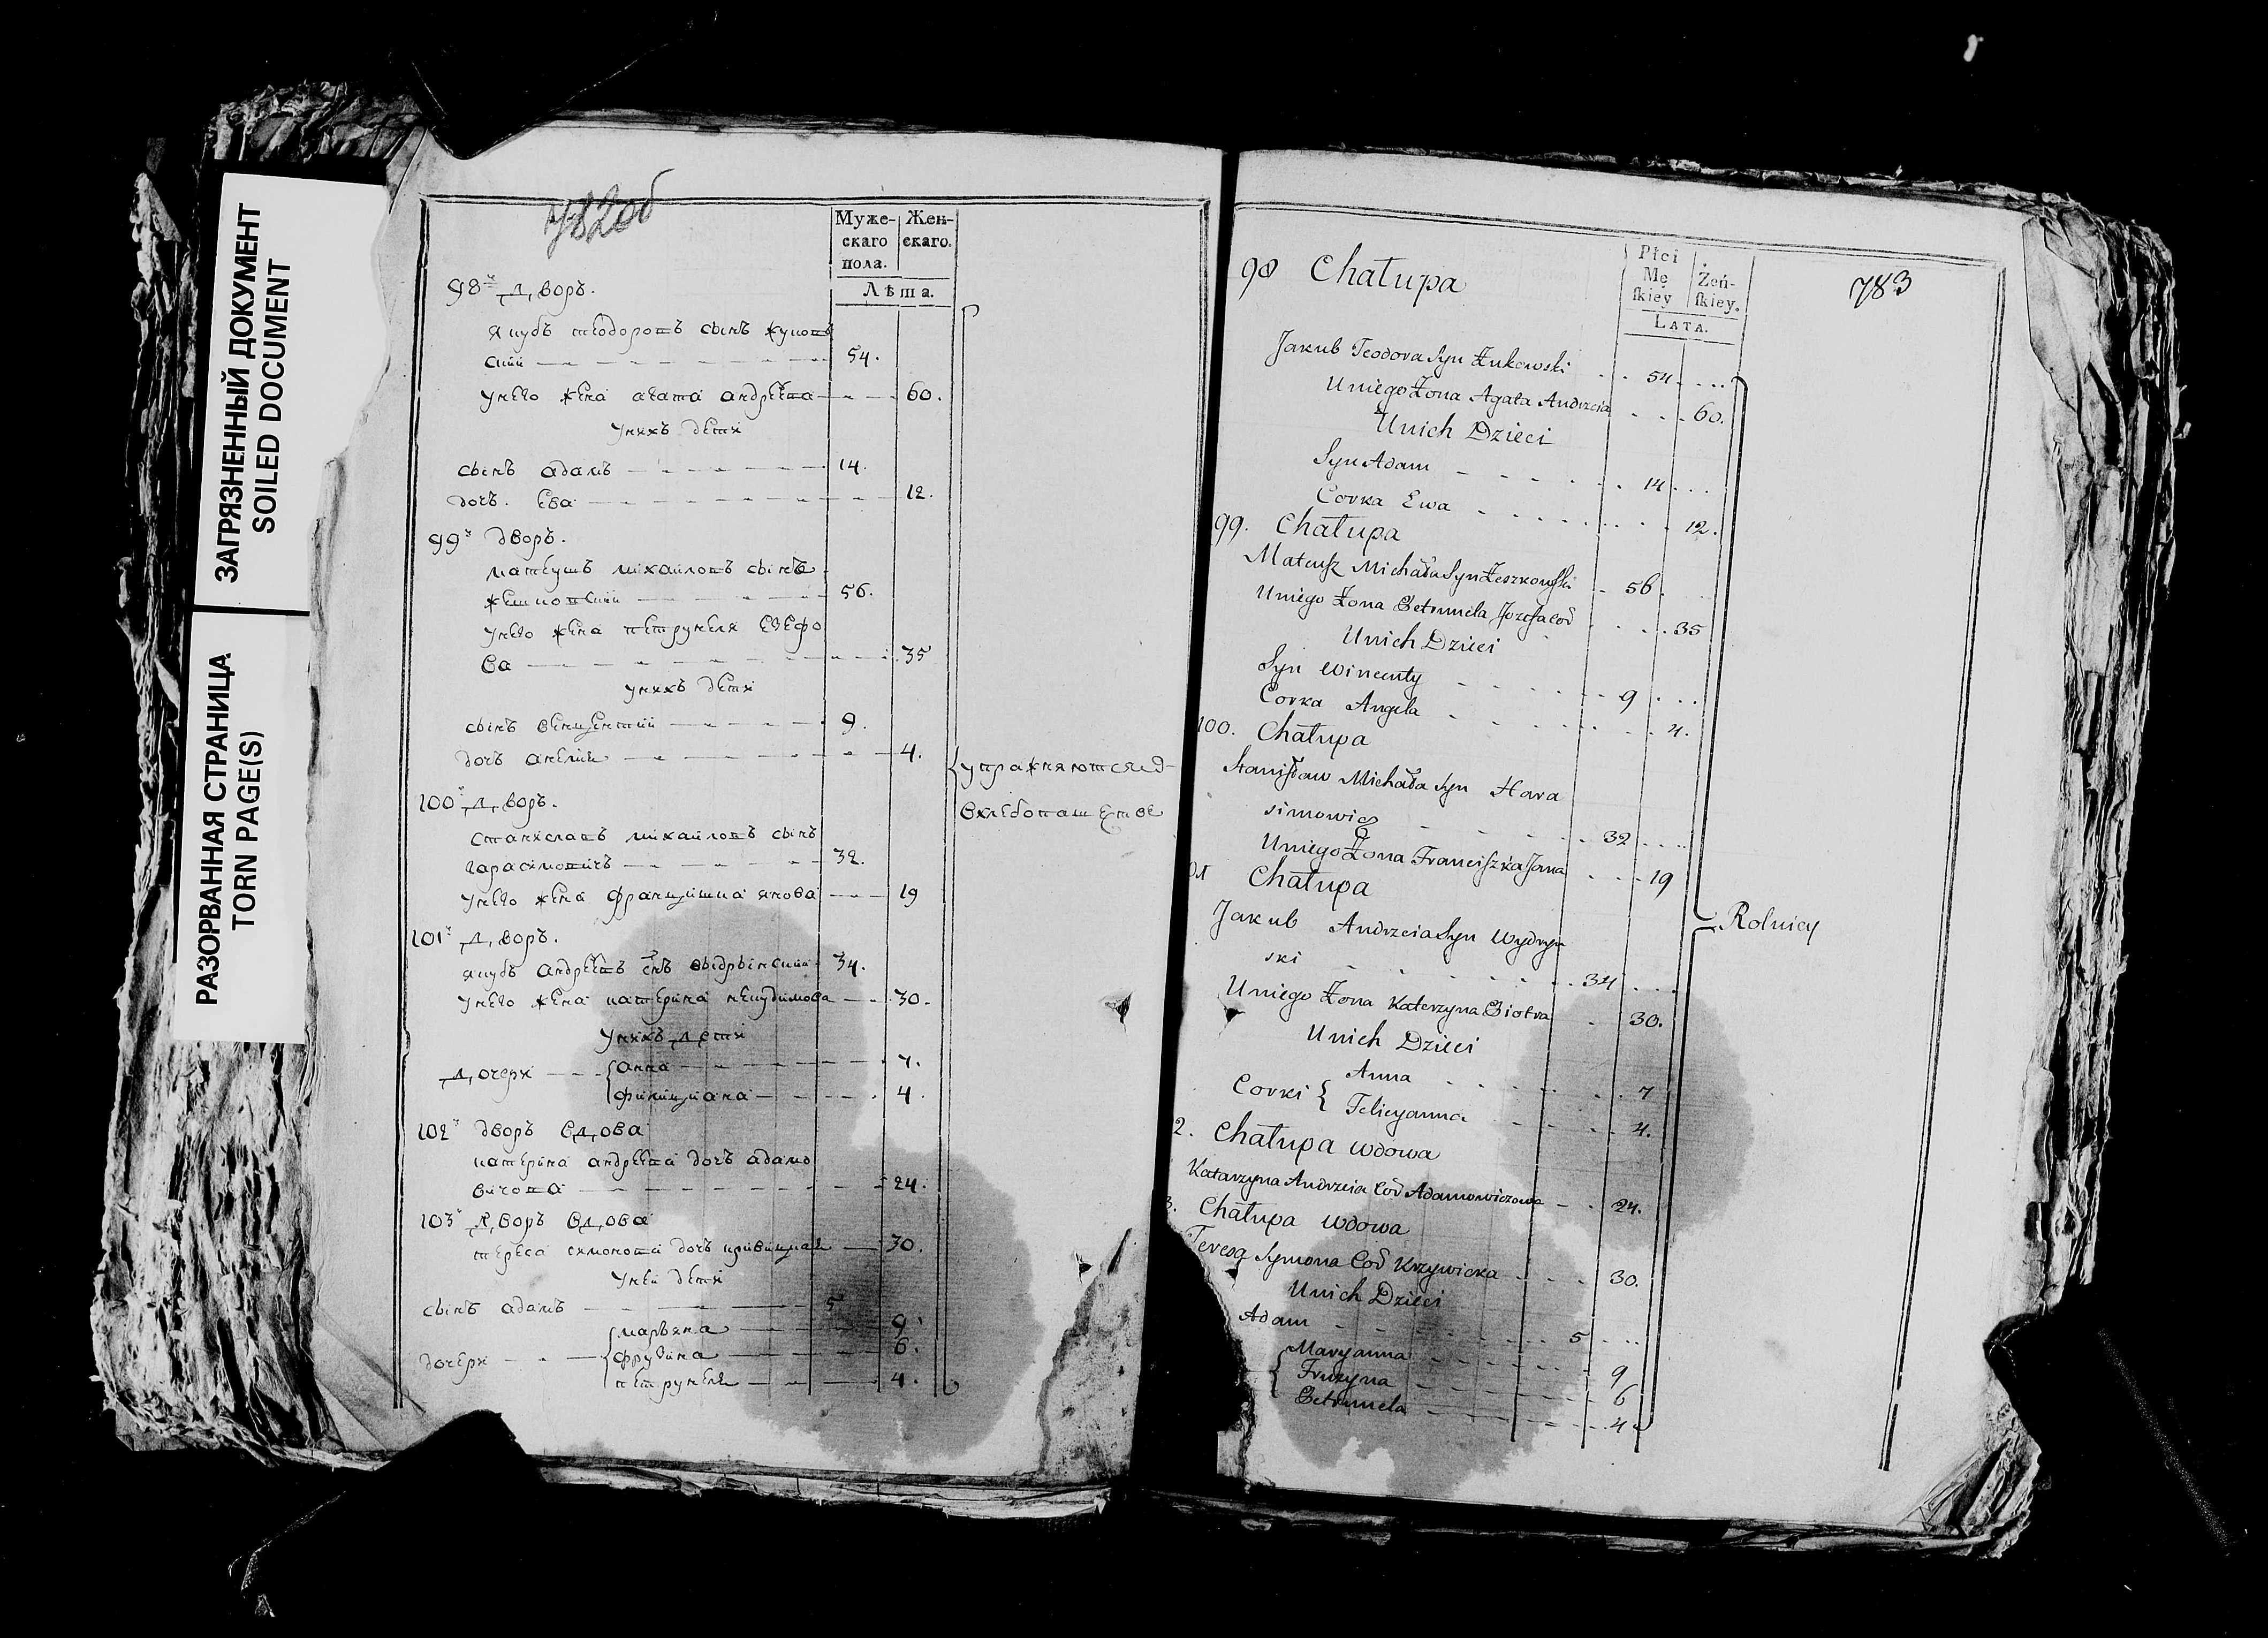 ЗАГРЯЗНЕННЫЙ ДОКУМЕНТ
SOILED DOCUMENT
РАЗОРВАННАЯ СТРАНИЦА
TORN PAGE(S)
782об
Муже-
скаго
пола.
Жен-
скаго.
Лѣта.
98й дворъ.
якубъ теодоровъ сынъ жуковъ
ский 54.
унего жена агата андреева 60.
унихъ дети
сынъ адамъ 14.
дочъ. Ева 12.
99й дворъ.
матеушъ михайловъ сынъ
жешковский 56.
унего жена петрунеля езефо
ва 35
унихъ дети
сынъ венцентий 9.
дочъ анеля 4.
100й дворъ.
станиславъ михайловъ сынъ
гарасимовичъ 32.
унего жена францишка янова 19
101й дворъ.
якубъ андреевъ снъ выдрынский 34.
унего жена катерина 30.
унихъ дети
дочери анна 7.
фелициана 4.
102й дворъ вдова
катерина андреева дочъ адамо
вичова 24.
103й дворъ вдова
тереса симонова дочъ кривицкая 30.
уней дети
сынъ адамъ 5
дочери марьяна 9.
фрузина 6.
петрунеля 4.
упражняются
вхлебопашестве
783
Płci
Mę
ſkiey
Żeń-
ſkiey.
LATA.
98 Chałupa
Jakub Teodora Syn Żukowski 54
Uniego Żona Agata Andrzeia 60.
Unich Dzieci
Syn Adam 14
Corka Ewa 12.
99. Chałupa
Mateusz Michała Syn Żeszkowski 56.
Uniego Żona Petronela Jozefa Cod 35
Unich Dzieci
Syn Wincenty 9
Corka Angela 4.
100. Chałupa
Stanisław Michała Syn Hara
simowicz 32
Uniego Żona Franciszka Jana 19
01 Chałupa
Jakub Andrzeia Syn Wydryn
ski 34
Uniego Żona Katerzyna Piotra 30.
Unich Dzieci
Corki Anna 7
Felicyanna 4.
2. Chałupa Wdowa
Katarzyna Andrzeia Cod Adamowiczowa 24.
3. Chałupa Wdowa
Teresa Symona Cod Krzywicka 30.
Unich Dzieci
Adam 5
Maryanna 9
Fruzyna 6
Petronela 4
Rolnicy